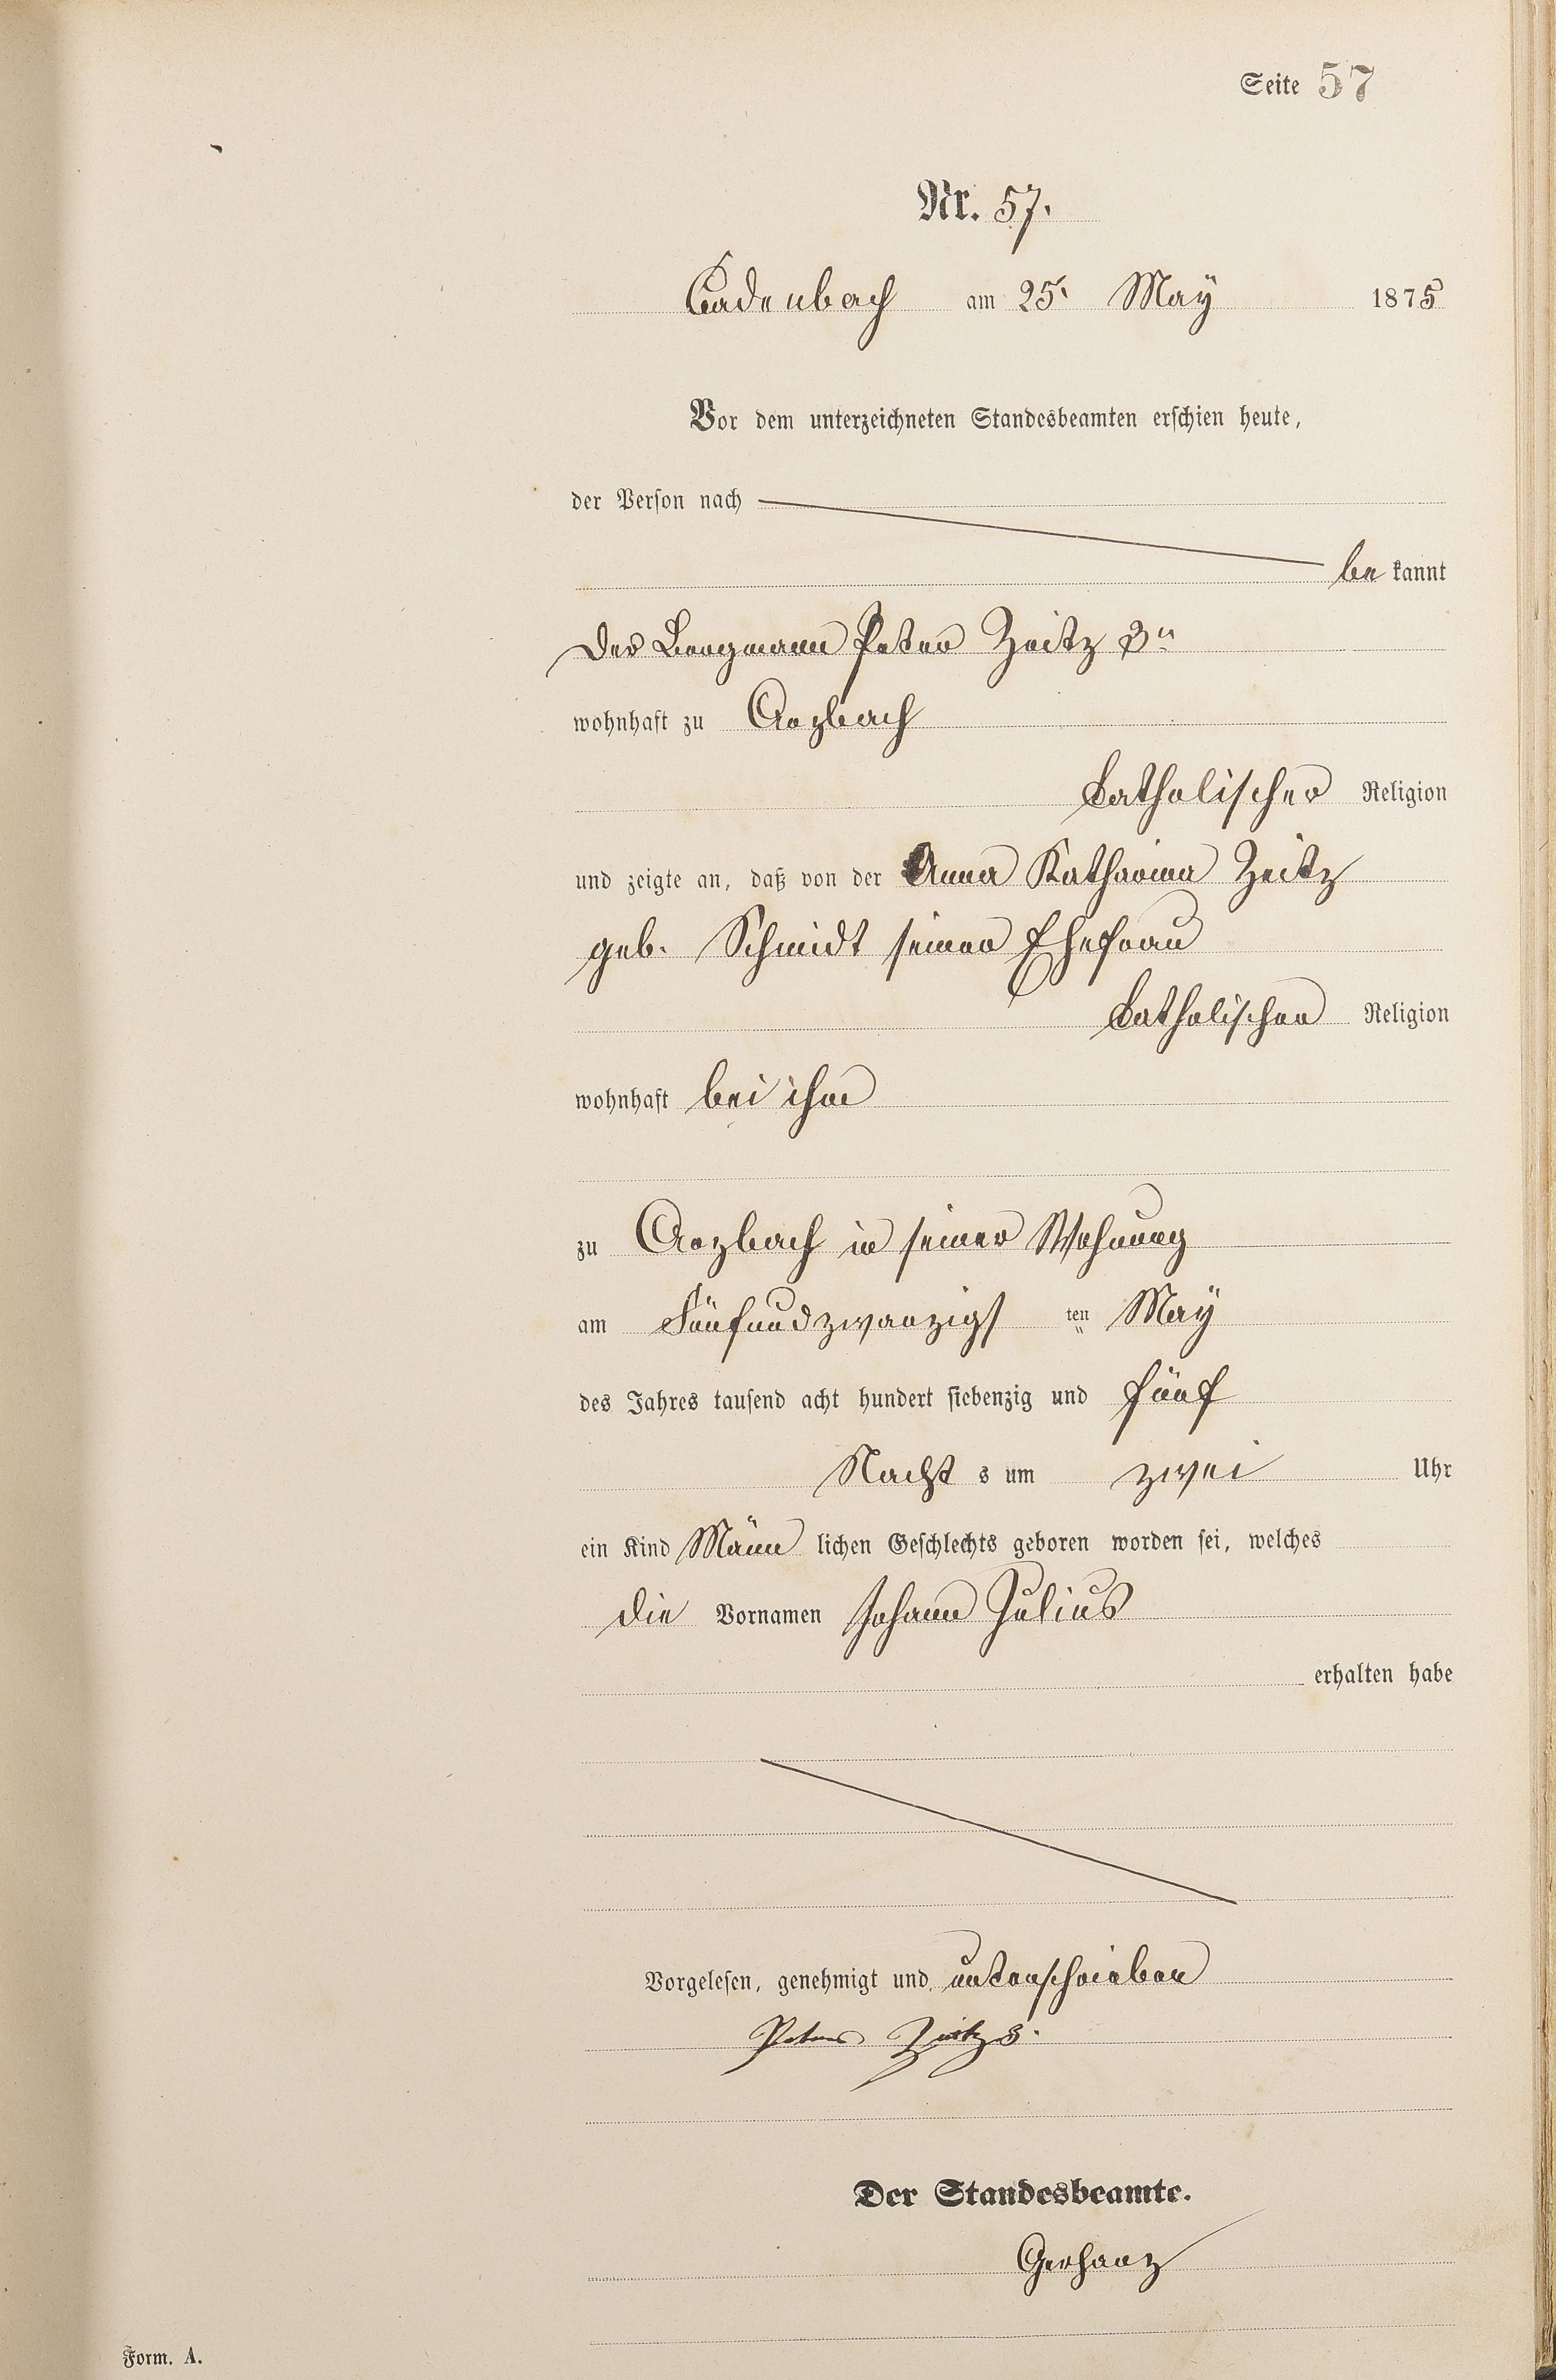 Seite 57
Nr. 57.
Cadenbach am 25. May 1875
Vor dem unterzeichneten Standesbeamten erschien heute,
der Person nach
be kannt
der Bergmann Peter Zeitz 3r
wohnhaft zu Arzbach
katholischer Religion
und zeigte an, daß von der Anna Katharina Zeitz
geb. Schmidt seiner Ehefrau
katholischer Religion
wohnhaft bei ihm
zu Arzbach in seiner Wohnung
am Fünfundzwanzigs ten May
des Jahres tausend acht hundert siebenzig und fünf
Nacht s um zwei Uhr
ein Kind Männ lichen Geschlechts geboren worden sei, welches
die Vornamen Johann Julius
erhalten habe
Vorgelesen, genehmigt und unterschrieben
Peter Zeitz 3.
Der Standesbeamte.
Gerhanz
Form. A.